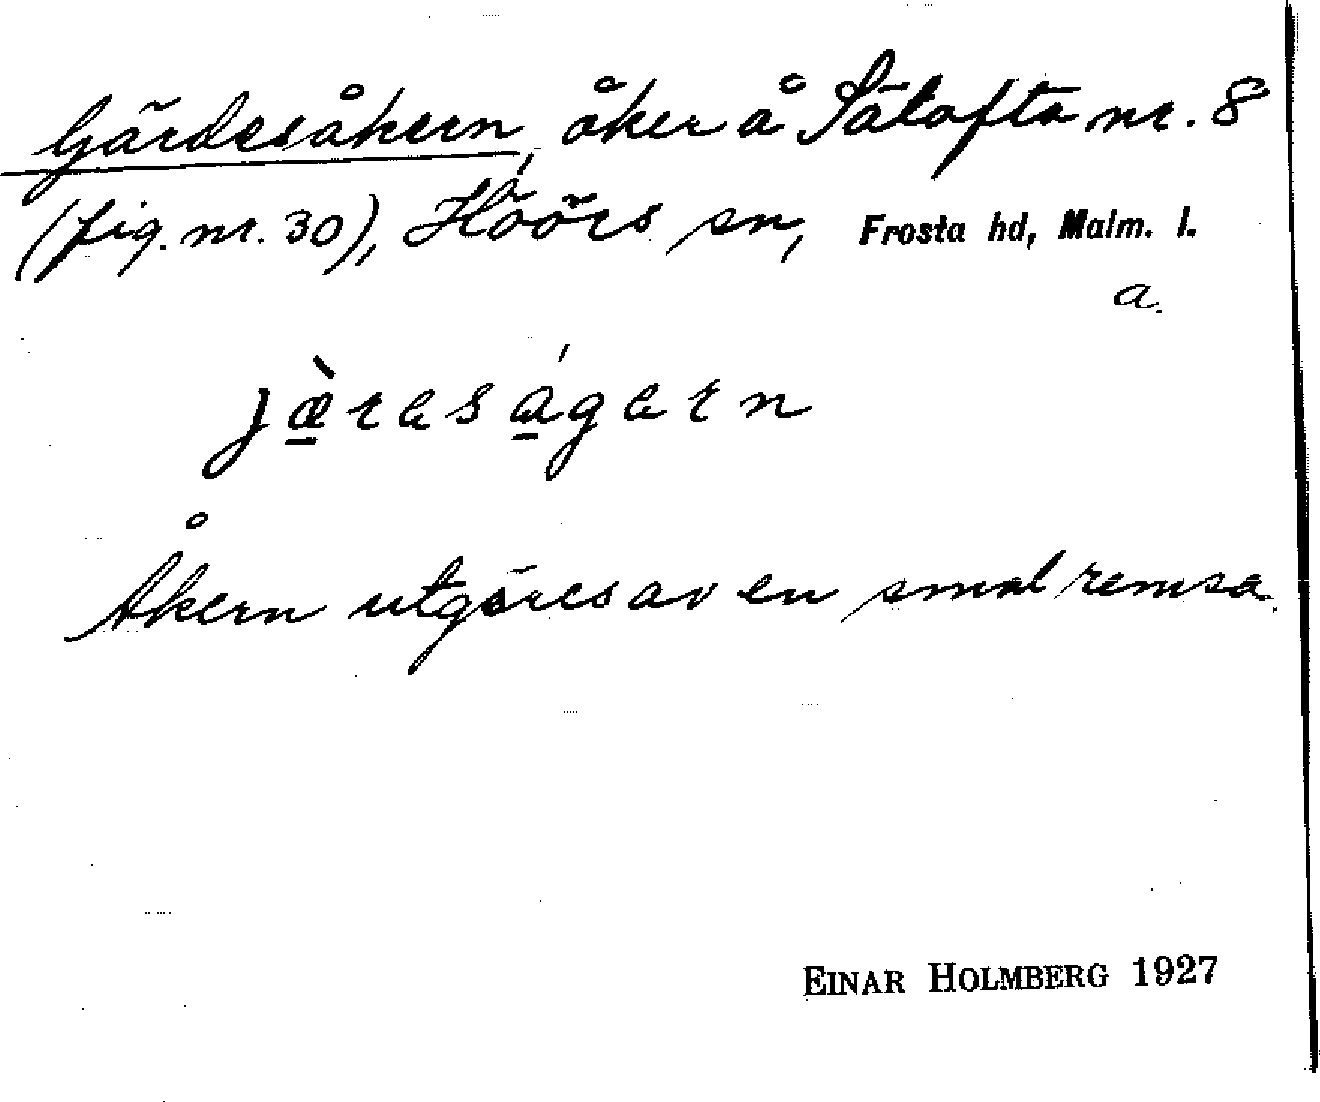 Gärdesåkern, åker å Sätofta nr. 8
(fig. nr. 30), Höörs sn, Frosta hd, Malm. l.
a.
jæ̠̀resá̠gern
Åkern utgöres av en smal remsa.
EINAR HOLMBERG 1927